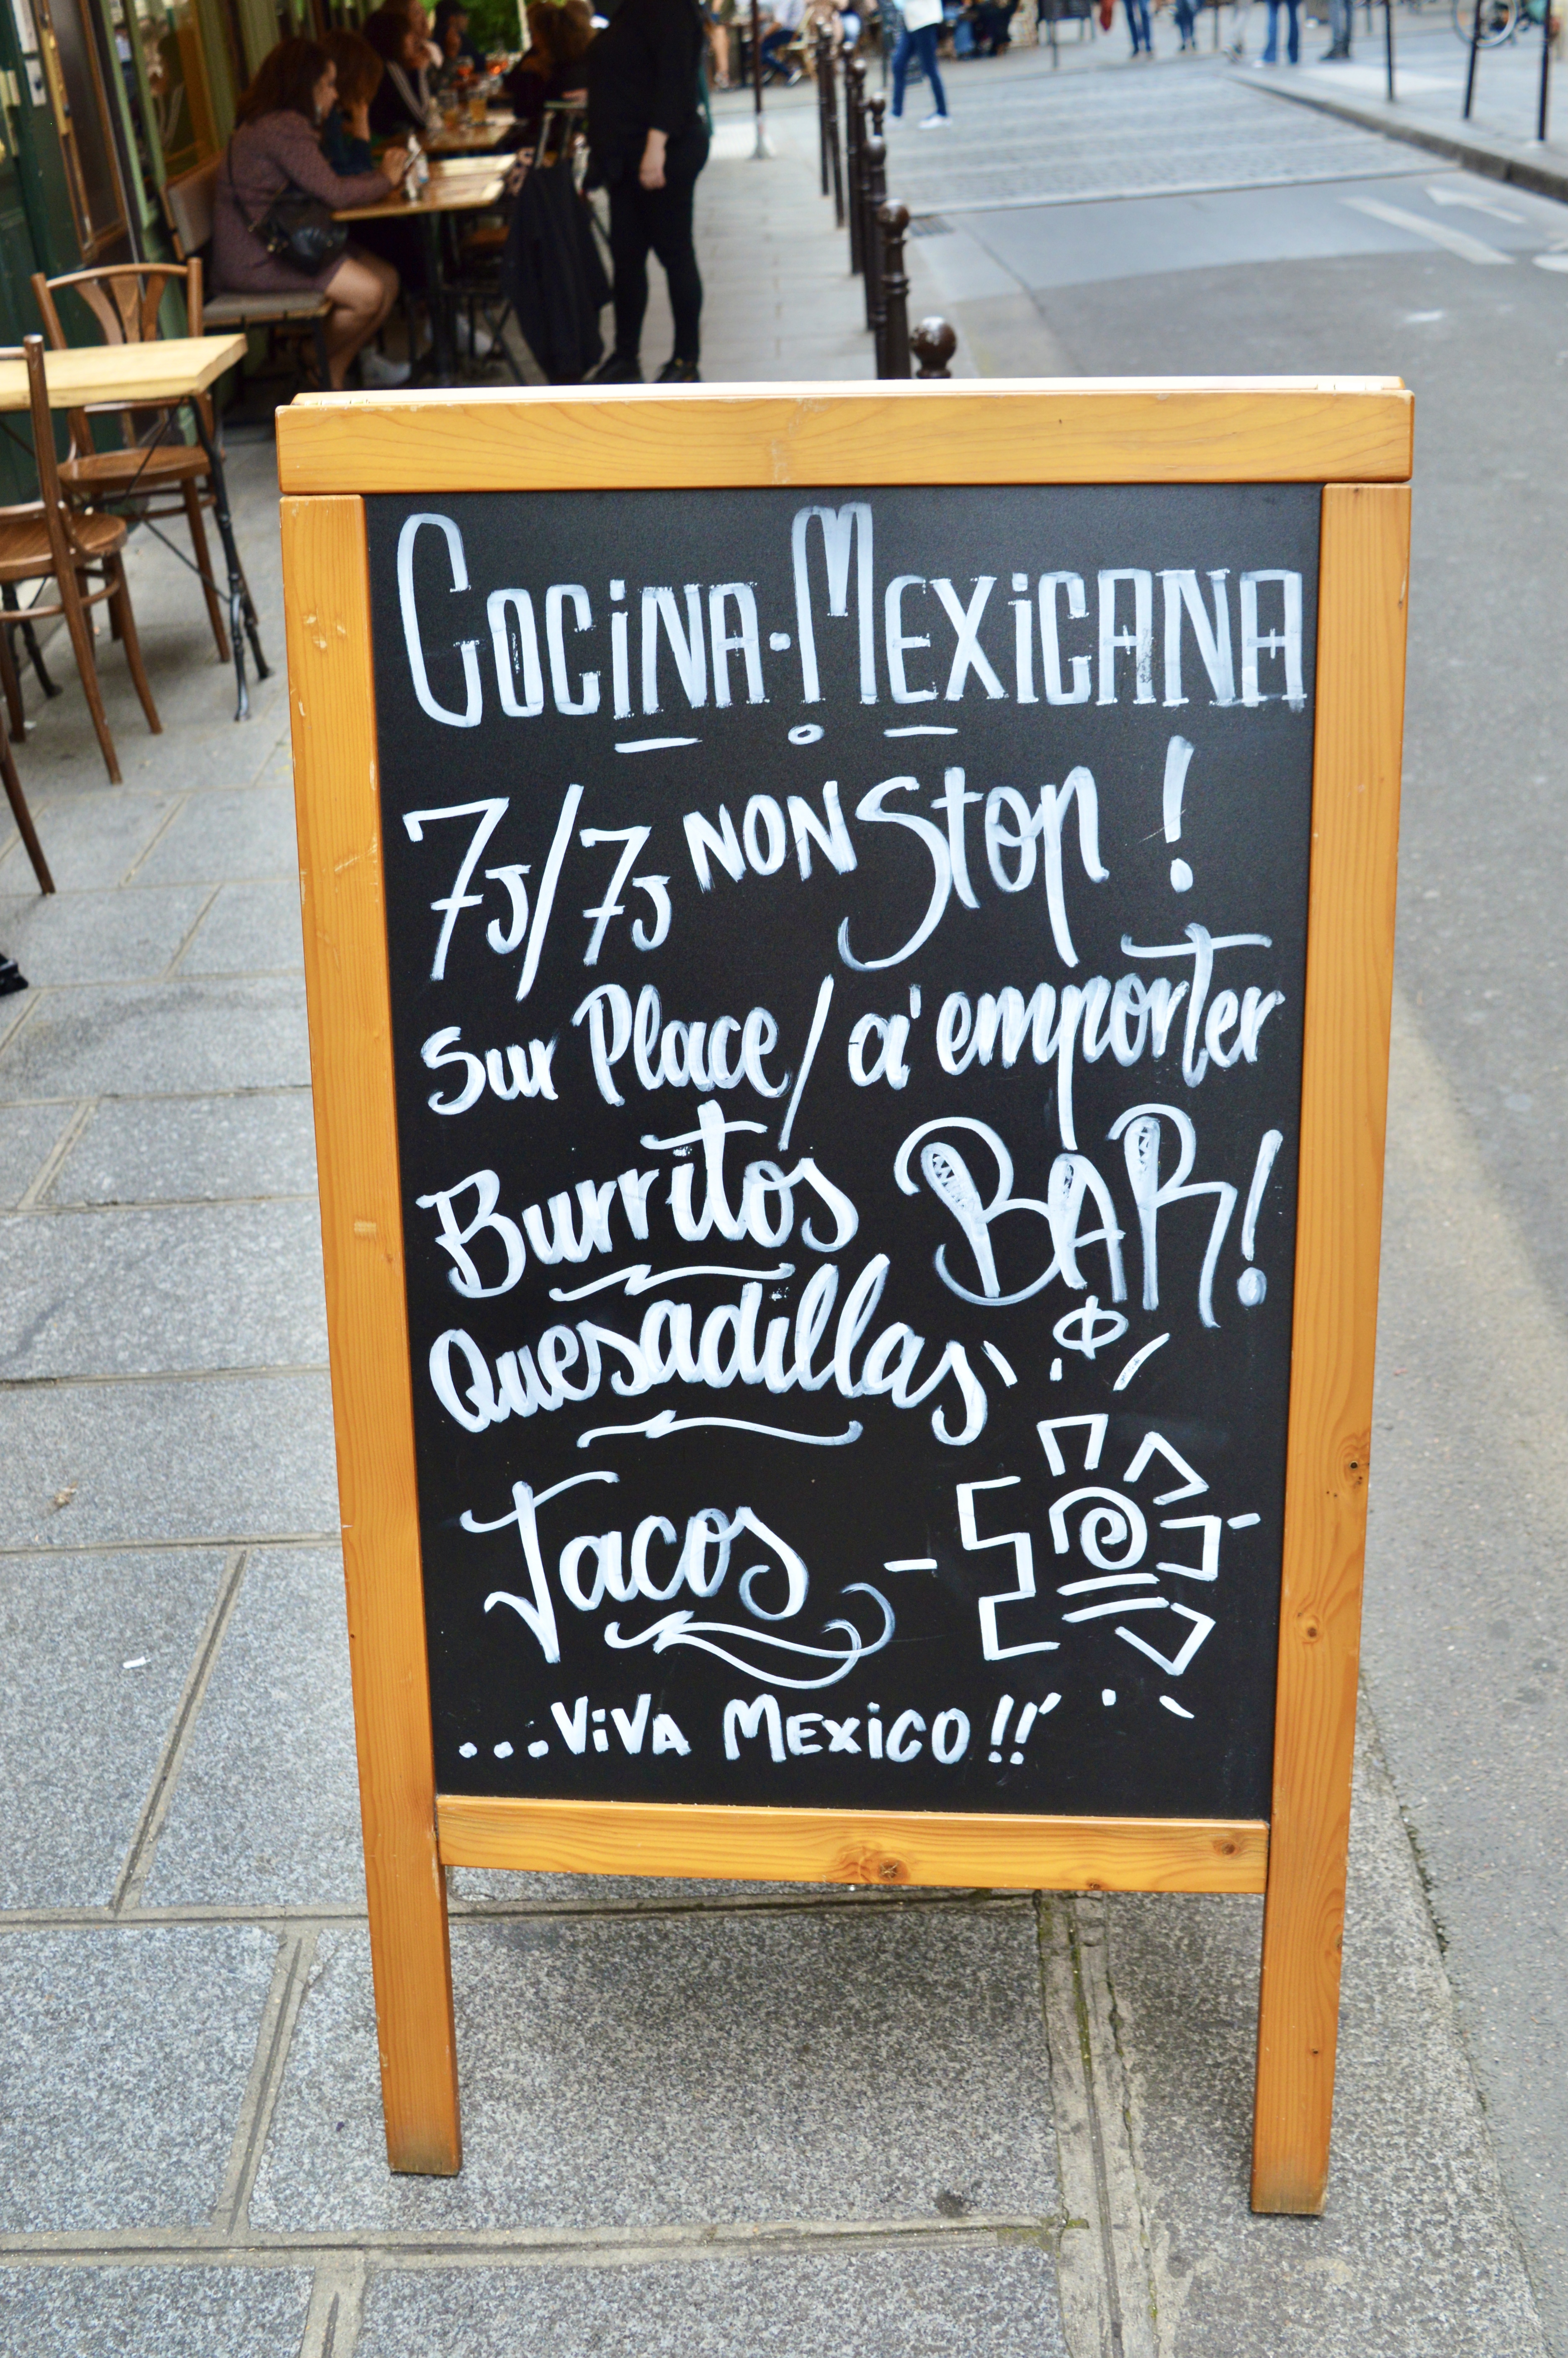 COCINA·MEXICANA
7J/7J NON Stop !
Sur Place/ a' emporter
Burritos BAR!
Quesadillas
Tacos
...ViVA MEXiCO!!